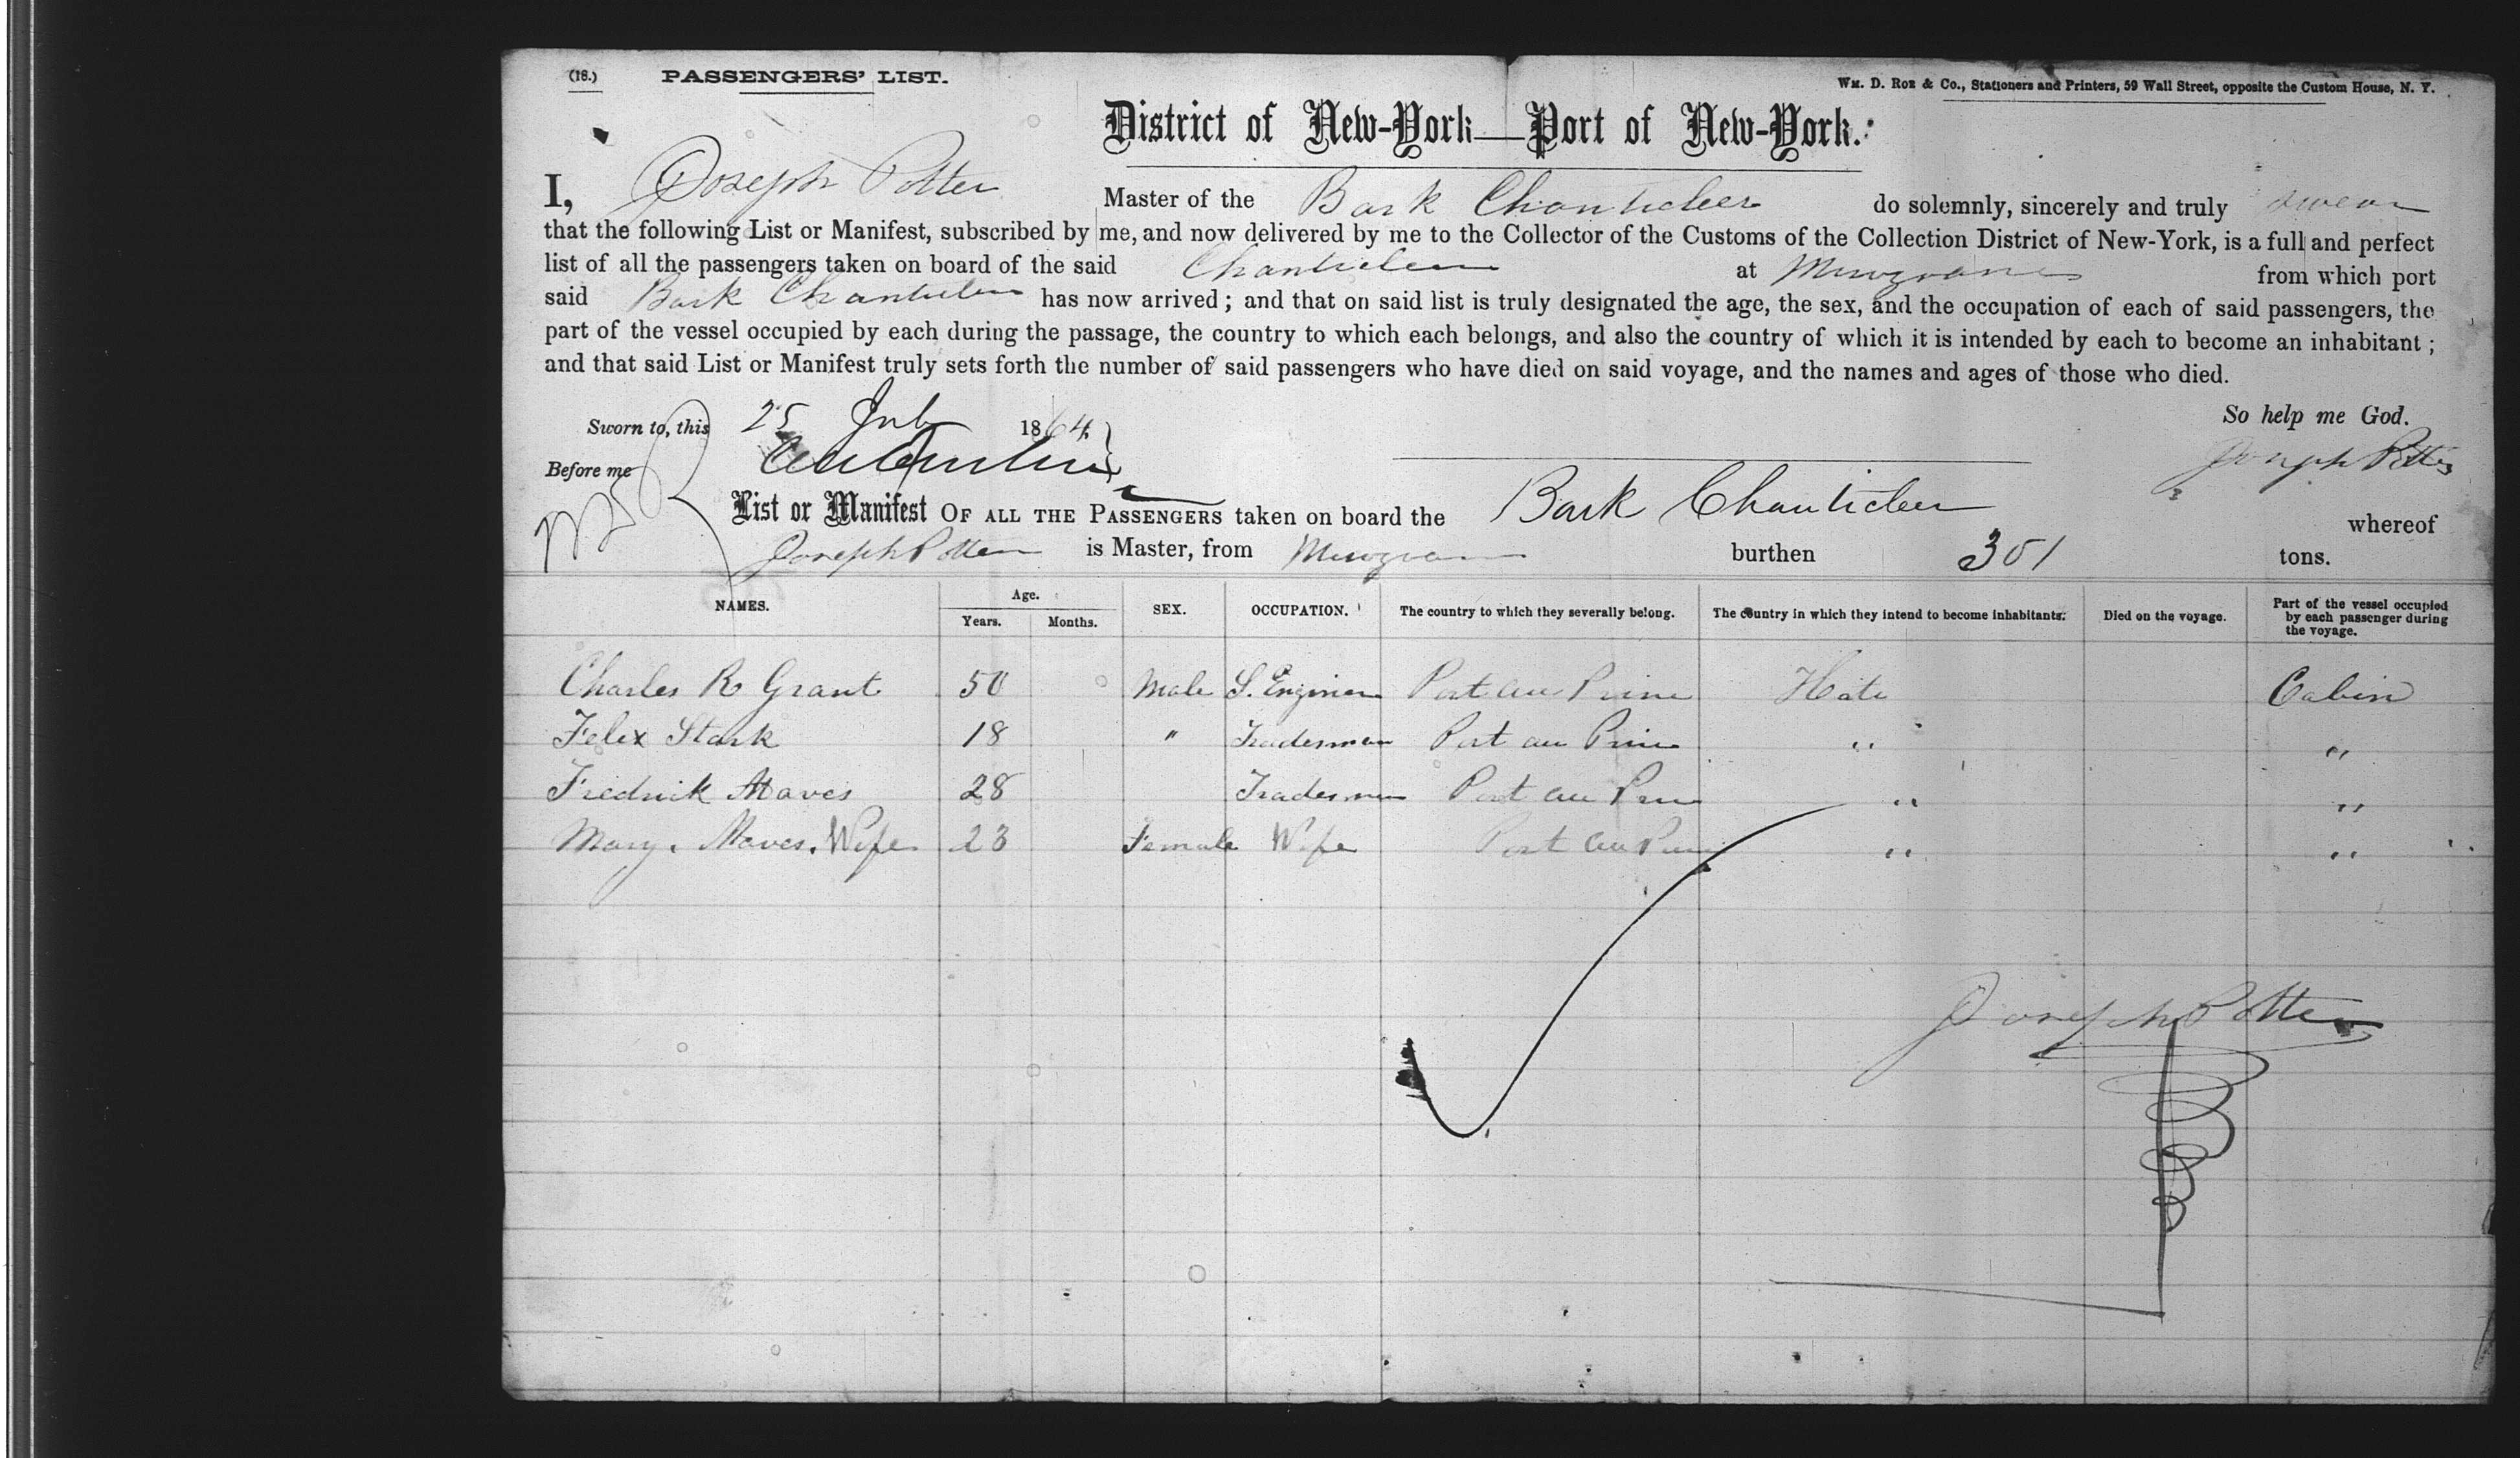 (18.) PASSENGERS' LIST.
Wm. D. Roe & Co., Stationers and Printers, 59 Wall Street, opposite the Custom House, N. Y.
District of New-York—Port of New-York.
I, Joseph Potter Master of the Bark Chanticleer do solemnly, sincerely and truly swear
that the following List or Manifest, subscribed by me, and now delivered by me to the Collector of the Customs of the Collection District of New-York, is a full and perfect
list of all the passengers taken on board of the said Chanticleer at from which port
said Bark Chanticleer has now arrived; and that on said list is truly designated the age, the sex, and the occupation of each of said passengers, the
part of the vessel occupied by each during the passage, the country to which each belongs, and also the country of which it is intended by each to become an inhabitant;
and that said List or Manifest truly sets forth the number of said passengers who have died on said voyage, and the names and ages of those who died.
So help me God.
Sworn to, this 25 July 1864
Joseph Potter
Before me
List or Manifest OF ALL THE PASSENGERS taken on board the Bark Chanticleer whereof
Joseph Potter is Master, from burthen 301 tons.
NAMES. Age. Years. Months. SEX. OCCUPATION. The country to which they severally belong. The country in which they intend to become inhabitants. Died on the voyage. Part of the vessel occupied by each passenger during the voyage.
Charles R Grant 50 Male S. Engineer Port au Prine Hati Cabin
Felix Stark 18 " Tradesman Port au Prine " "
Fredrick Maves 28 Tradesman Port au Prin " "
Mary. Maves. Wife 23 Female Wife Port au Prin " "
Joseph Potter